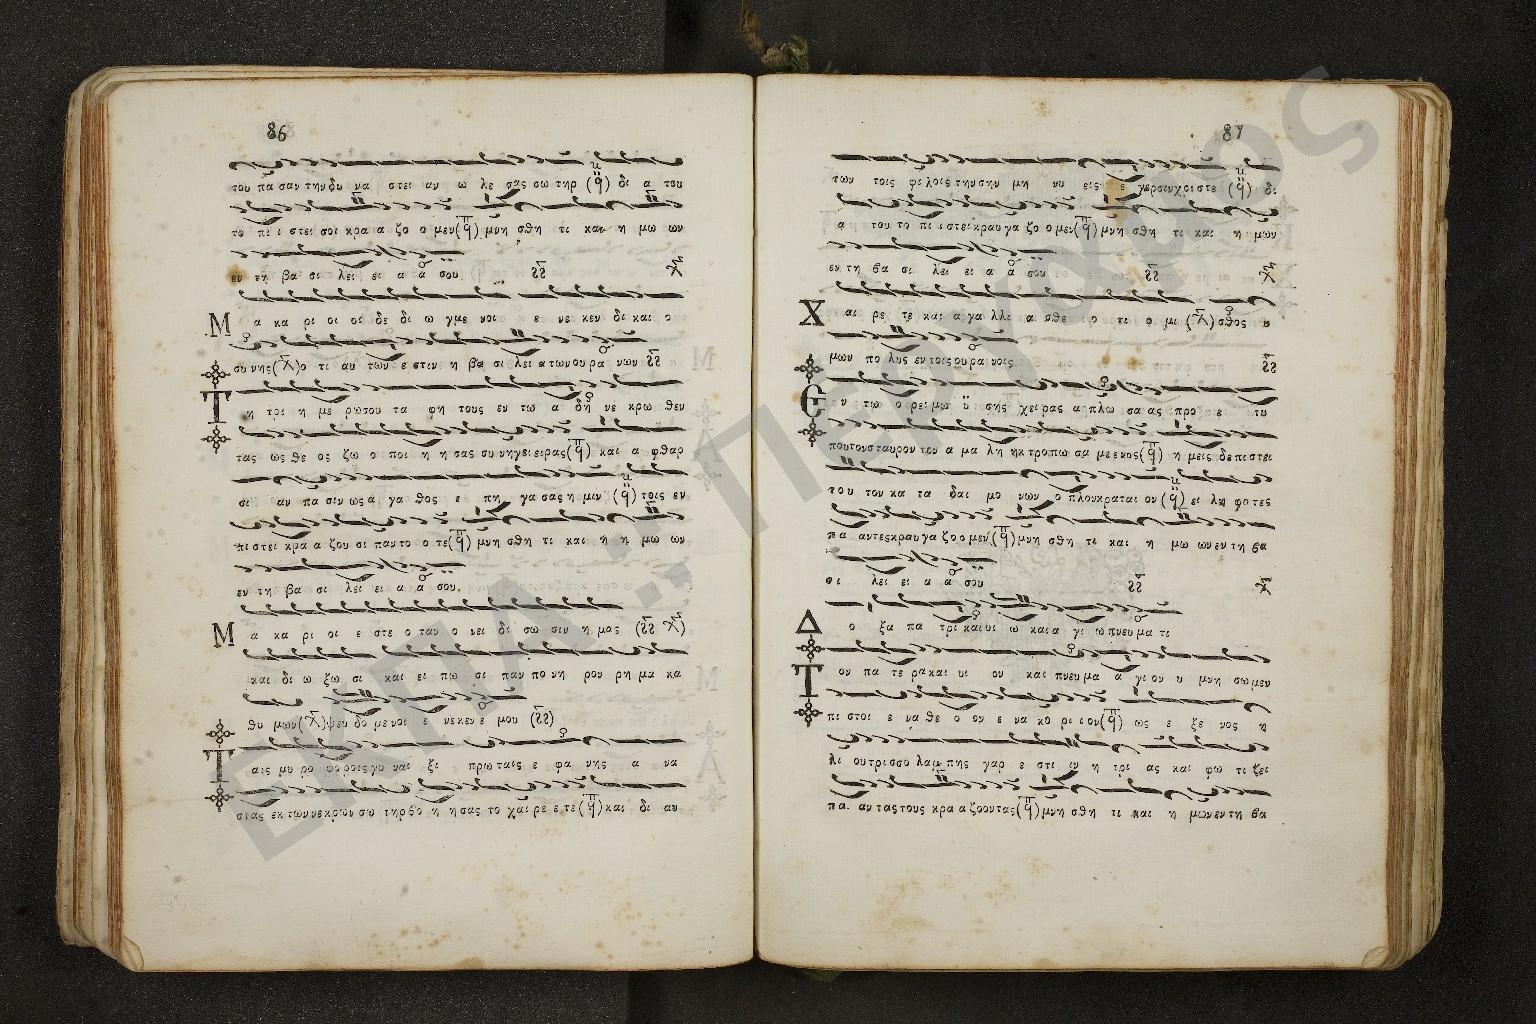 86
του πα σαν την δυ να στει αν ω λε σας σω τηρ (q) δι α του
το πι ι στει σοι κρα α ζο ο μεν (q) μνη σθη τι και η μω ων
εν τη βα σι λει ει α α σου
Μ α κα ρι οι οι δε δι ω γμε νοι ε νε κεν δι και ο
συ νης (χ) ο τι αυ των ε στιν η βα σι λει α των ου ρα νων
Τ η τρι η με ρω σου τα φη τους εν τω α δη νε κρω θεν
τας ως θε ος ζω ο ποι η η σας συ νη γει ειρας (q) και α φθαρ
σι αν πα σιν ως α γα θος ε πη γα σας η μιν (q) τοις εν
πι στει κρα α ζου σι παν το ο τε (q) μνη σθη τι και η η μω ων
εν τη βα σι λει ει α α σου.
Μ α κα ρι οι ε στε ο ταν ο νει δι σω σιν η μας
και δι ω ξω σι και ει πω σι παν πο νη ρον ρη μα κα
θυ μων (χ) ψευ δο με νοι ε νε κεν ε μου
Τ αις μυ ρο φο ροις γυ ναι ξι πρω ταις ε φα νης α να
στας εκ των νε κρων σω τηρ βο η η σας το χαι ρε ε τε (q) και δι αυ
87
των τοις φι λοις την σην μη νυ εις ε γερ σιν χρι στε (q) δι
α του το πι ι στει κραυ γα ζο ο μεν (q) μνη σθη τι και η μων
εν τη βα σι λει ει α α σου
Χ αι ρε τε και α γα λλι α σθε ο τι ο μι (χ) σθος υ
μων πο λυς εν τοις ου ρα νοις
Ε ν τω ο ρει μω ϋ σης χει ρας α πλω σα ας προ ε τυ
που τον σταυρον τον α μα λη ηκ τρο πω σα με ε νος (q) η μεις δε πι στει
του τον κα τα δαι μο νων ο πλον κρα ται ον (q) ει λη φο τες
πα αντες κραυ γα ζο ο μεν (q) μνη σθη τι και η μω ων εν τη βα
σι λει ει α α σου
Δ ο ξα πα τρι και υι ω και α γι ω πνευ μα τι
Τ ον πα τε ρα και υι ον και πνευ μα α γι ον υ μνη σω μεν
πι στοι ε να θε ο ον ε να κυ ρι ι ον (q) ως ε ξε νος η
λι ου τρισσο λαμ πης γαρ ε στι ιν η τρι ας και φω τι ζει
πα αν τας τους κρα α ζο ον τας (q) μνη σθη τι και η μων εν τη βα